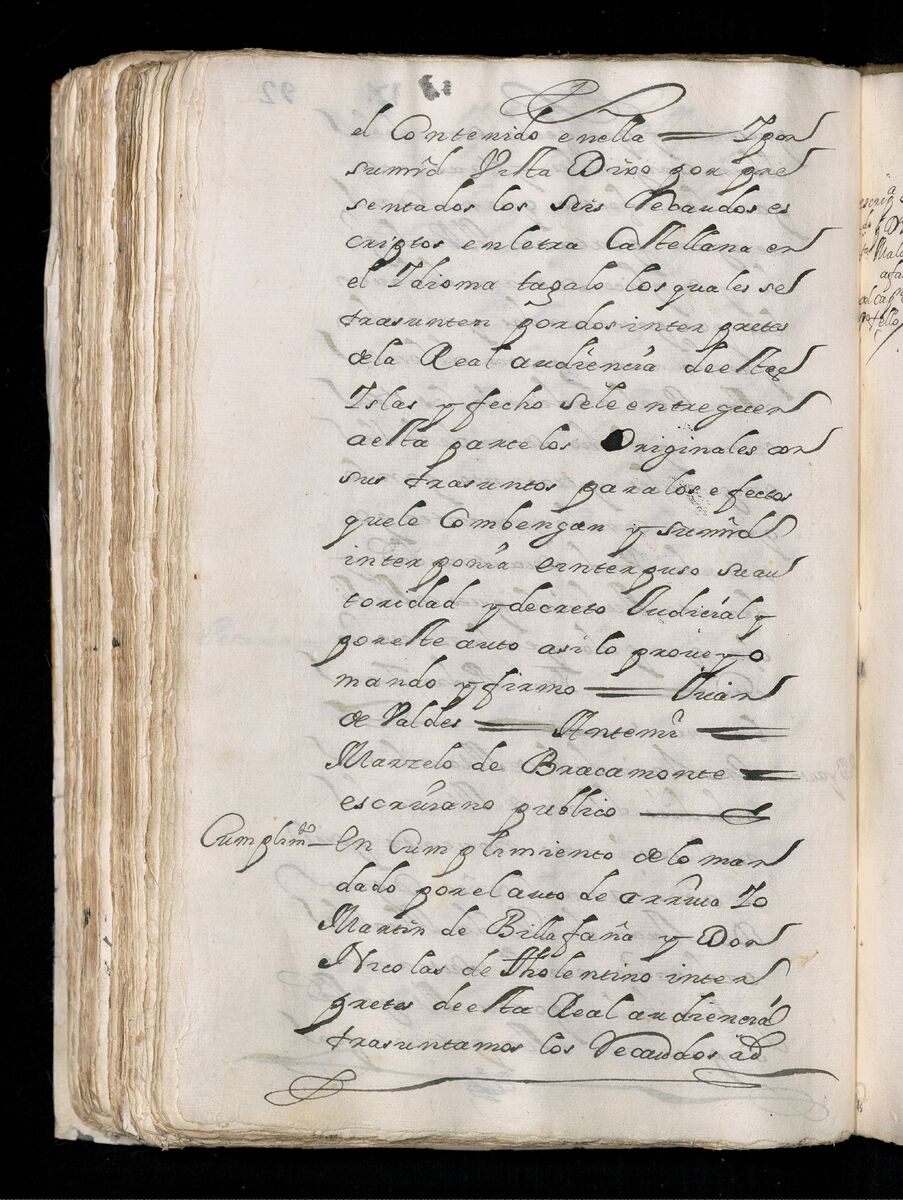 el Contenido enella — Y por
sumrd Vista Dixo por pre
sentados los seis Recaudos es
criptos en letra Castellana en
el Ydioma tagalo los quales se
trasunten por dos interpretes
de la Real audiencia de estas
Yslas y fecho se le entreguen
a esta parte los Originales con
sus trasuntos para los efectos
que le Combengan y sumrd
interponia e interpuso su au
toridad y decreto Judicial y
por este auto asi lo proueyo
mando y firmo — Juan
de Valdes — Antemi —
Marzelo de Bracamonte —
escriuano publico —
Cumplimto — En Cumplimiento de lo man
dado por el auto de arriua Yo
Martin de Billafaña y Don
Nicolas de tholentino inter
pretes de esta Real audiencia
trasuntamos los Recaudos ad